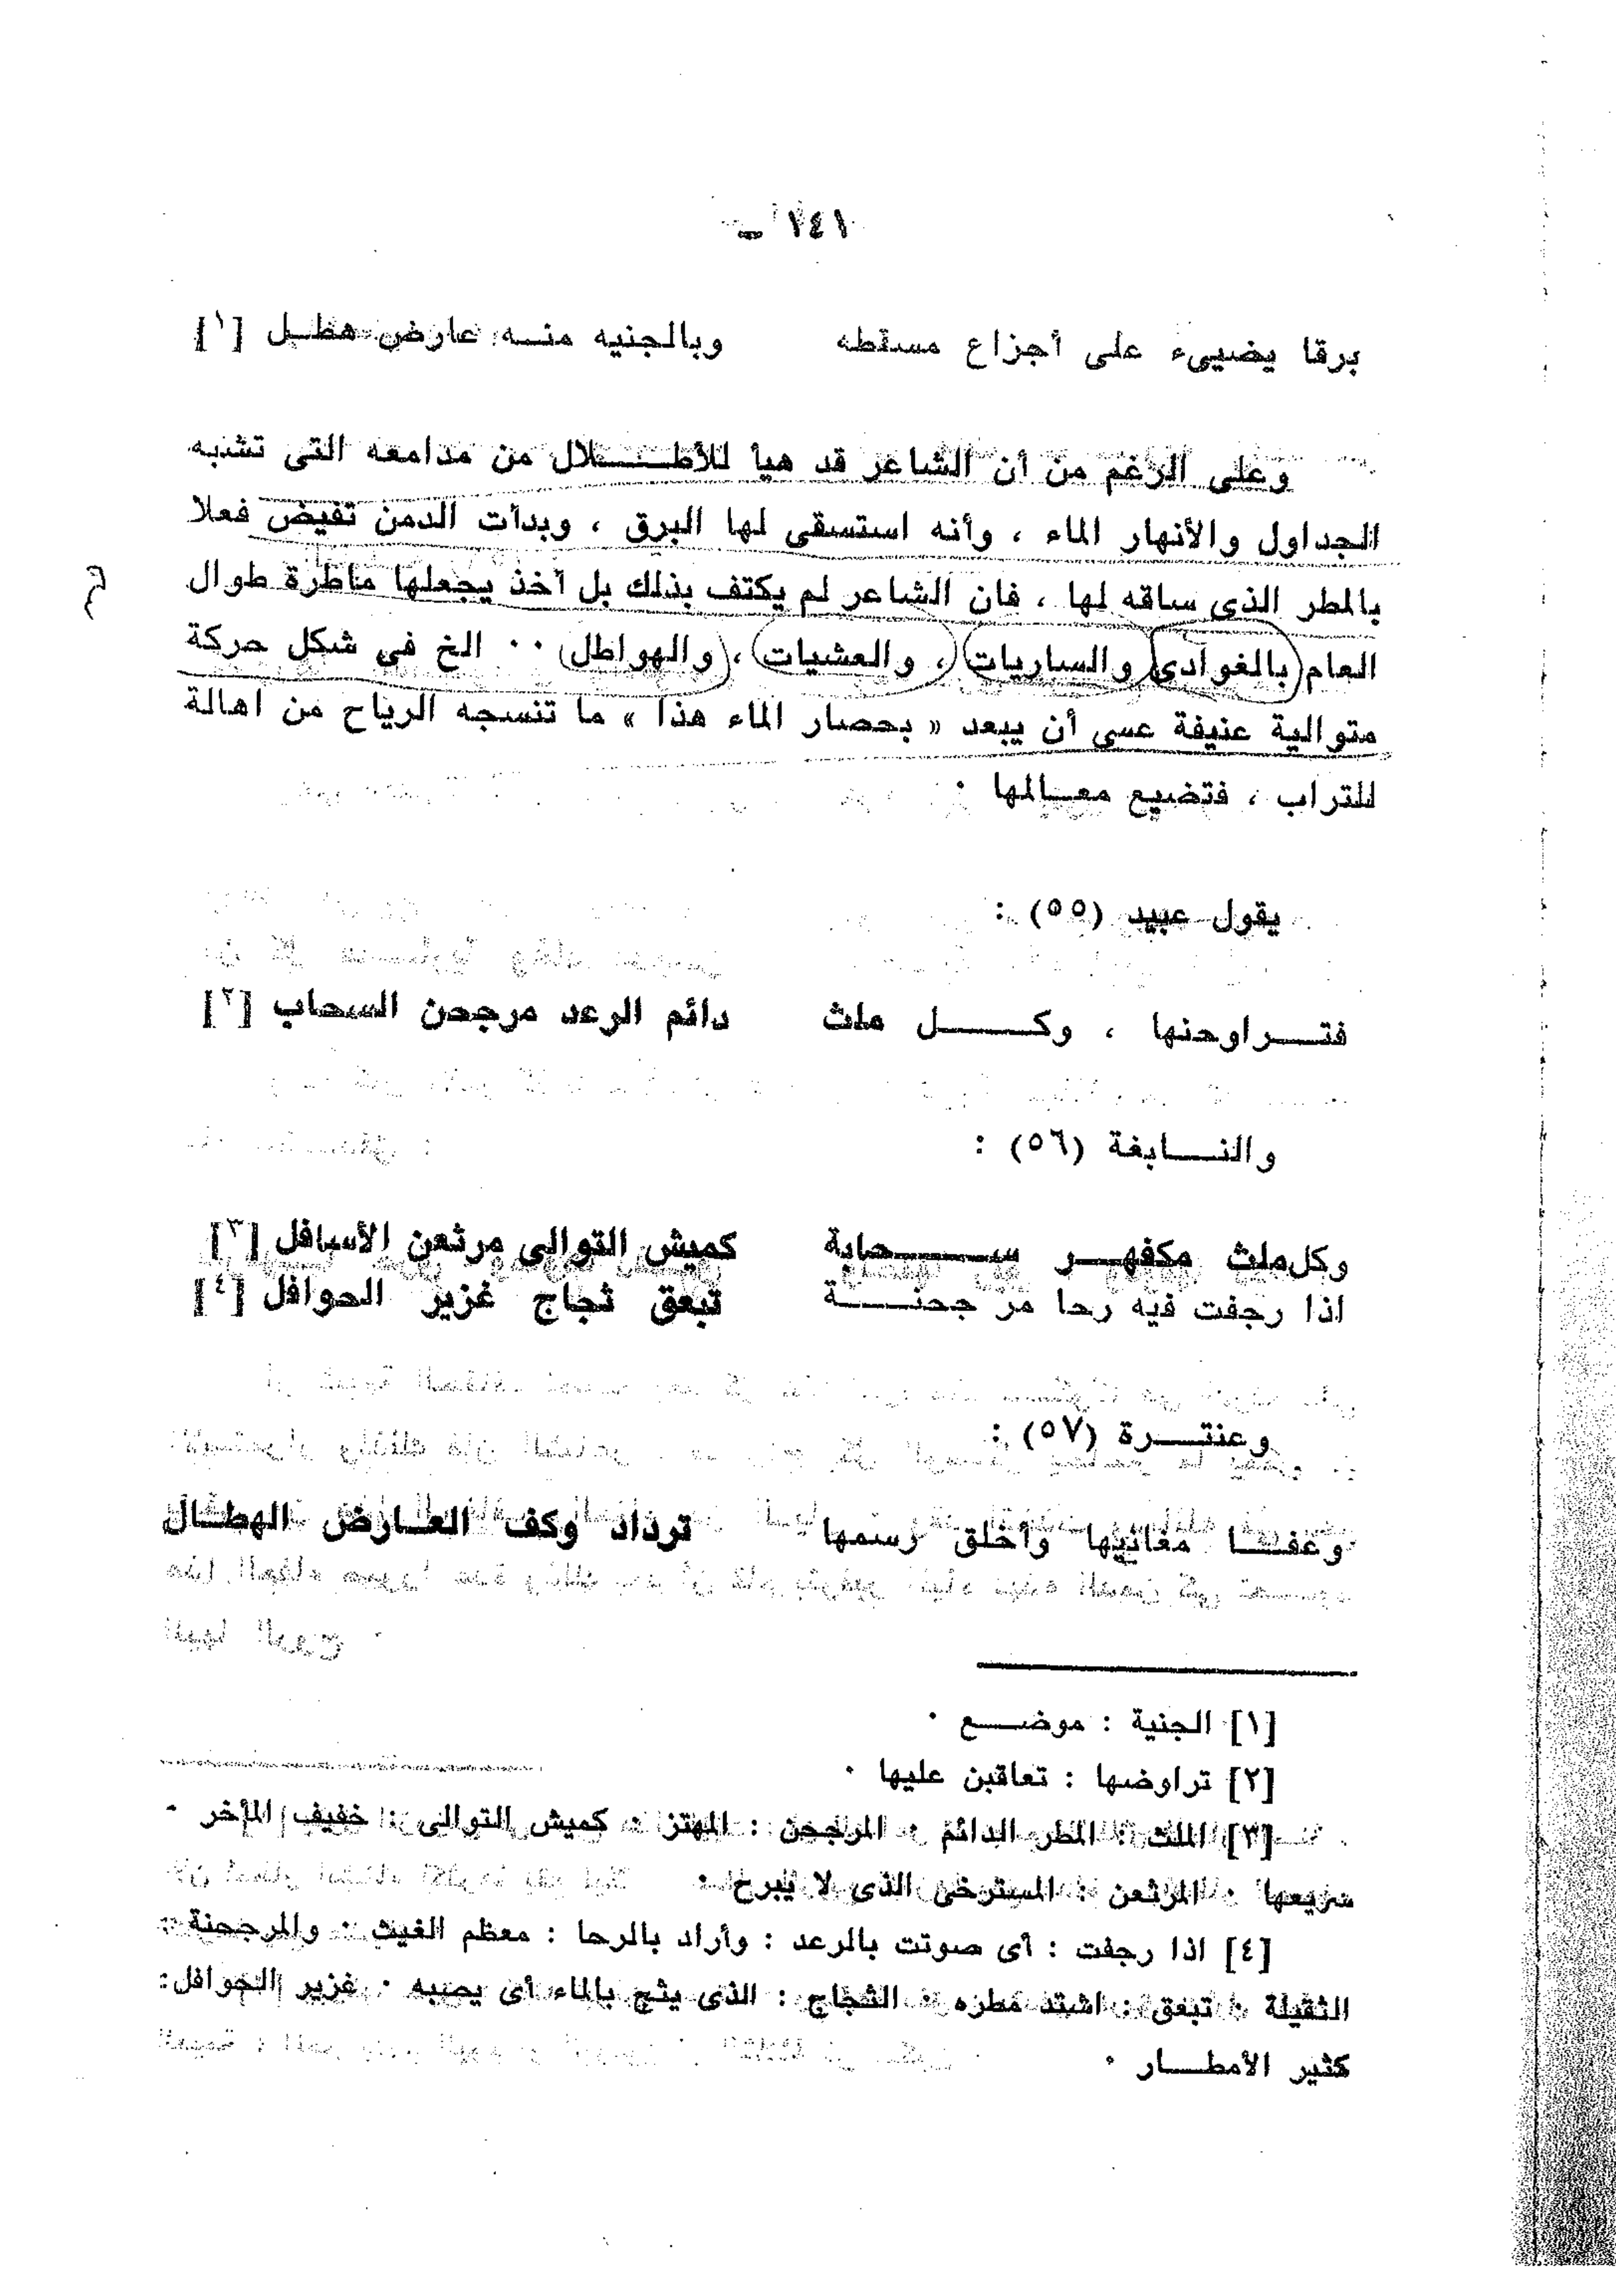 ١٤١ ـ
برقا يضيىء على أجزاع مسقطه وبالجنيه منه عارض هطل [١]
وعلى الرغم من أن الشاعر قد هيأ للأطلال من مدامعه التى تشبه
الجداول والأنهار الماء ، وأنه استسقى لها البرق ، وبدأت الدمن تفيض فعلا
بالمطر الذى ساقه لها ، فان الشاعر لم يكتف بذلك بل أخذ يجعلها ماطرة طوال
العام بالغوادى والساريات ، والعشيات ، والهواطل ٠٠ الخ فى شكل حركة
متوالية عنيفة عسى أن يبعد « بحصار الماء هذا » ما تنسجه الرياح من اهالة
للتراب ، فتضيع معالمها ٠
يقول عبيد (٥٥) :
فتراوحنها ، وكل ملث دائم الرعد مرجحن السحاب [٢]
والنابغة (٥٦) :
وكل ملث مكفهر سحابة كميش التوالى مرثعن الأسافل [٣]
اذا رجفت فيه رحا مرجحنة تبعق ثجاج غزير الحوافل [٤]
وعنترة (٥٧) :
وعفا مغانيها وأخلق رسمها ترداد وكف العارض الهطال
[١] الجنية : موضع ٠
[٢] تراوضها : تعاقبن عليها ٠
[٣] الملث : المطر الدائم ٠ المرجحن : المهتز ٠ كميش التوالى : خفيف المأخر ٠
سريعها ٠ المرثعن : المسترخى الذى لا يبرح ٠
[٤] اذا رجفت : أى صوتت بالرعد : وأراد بالرحا : معظم الغيث ٠ والمرجحنة :
الثقيلة ٠ تبعق : اشتد مطره ٠ الثجاج : الذى يثج بالماء أى يصببه ٠ غزير الحوافل :
كثير الأمطار ٠